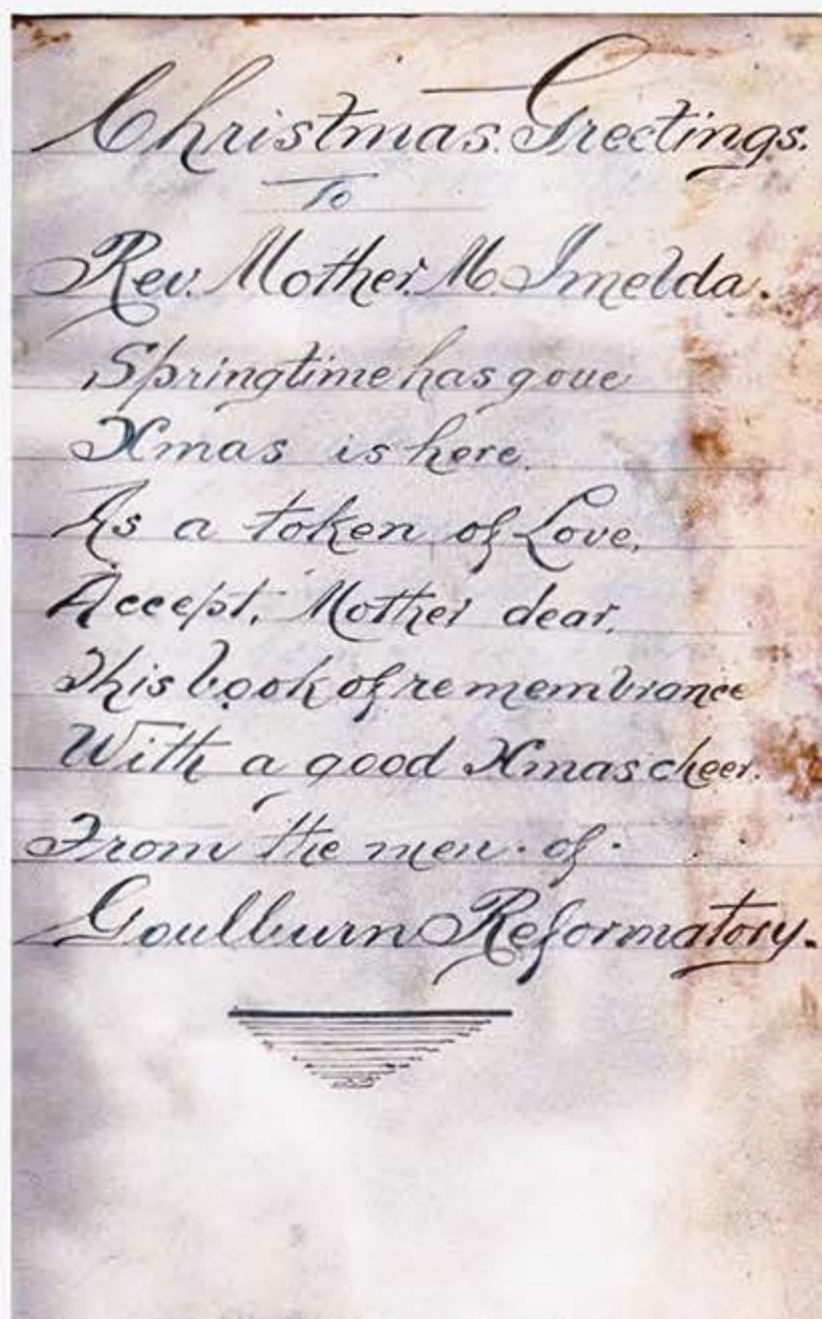 Christmas Greetings.
To
Rev. Mother M. Imelda.
Springtime has gone
Xmas is here.
As a token of Love,
Accept, Mother dear,
This book of remembrance
With a good Xmas cheer.
From the men of
Goulburn Reformatory.